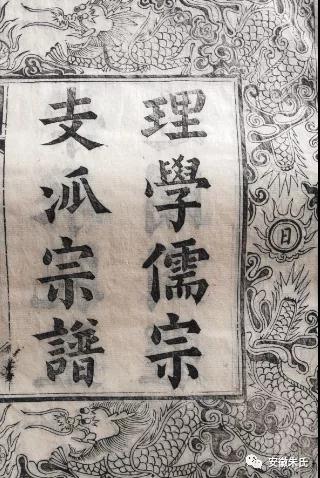 理學儒宗
支派宗譜
日
安徽朱氏